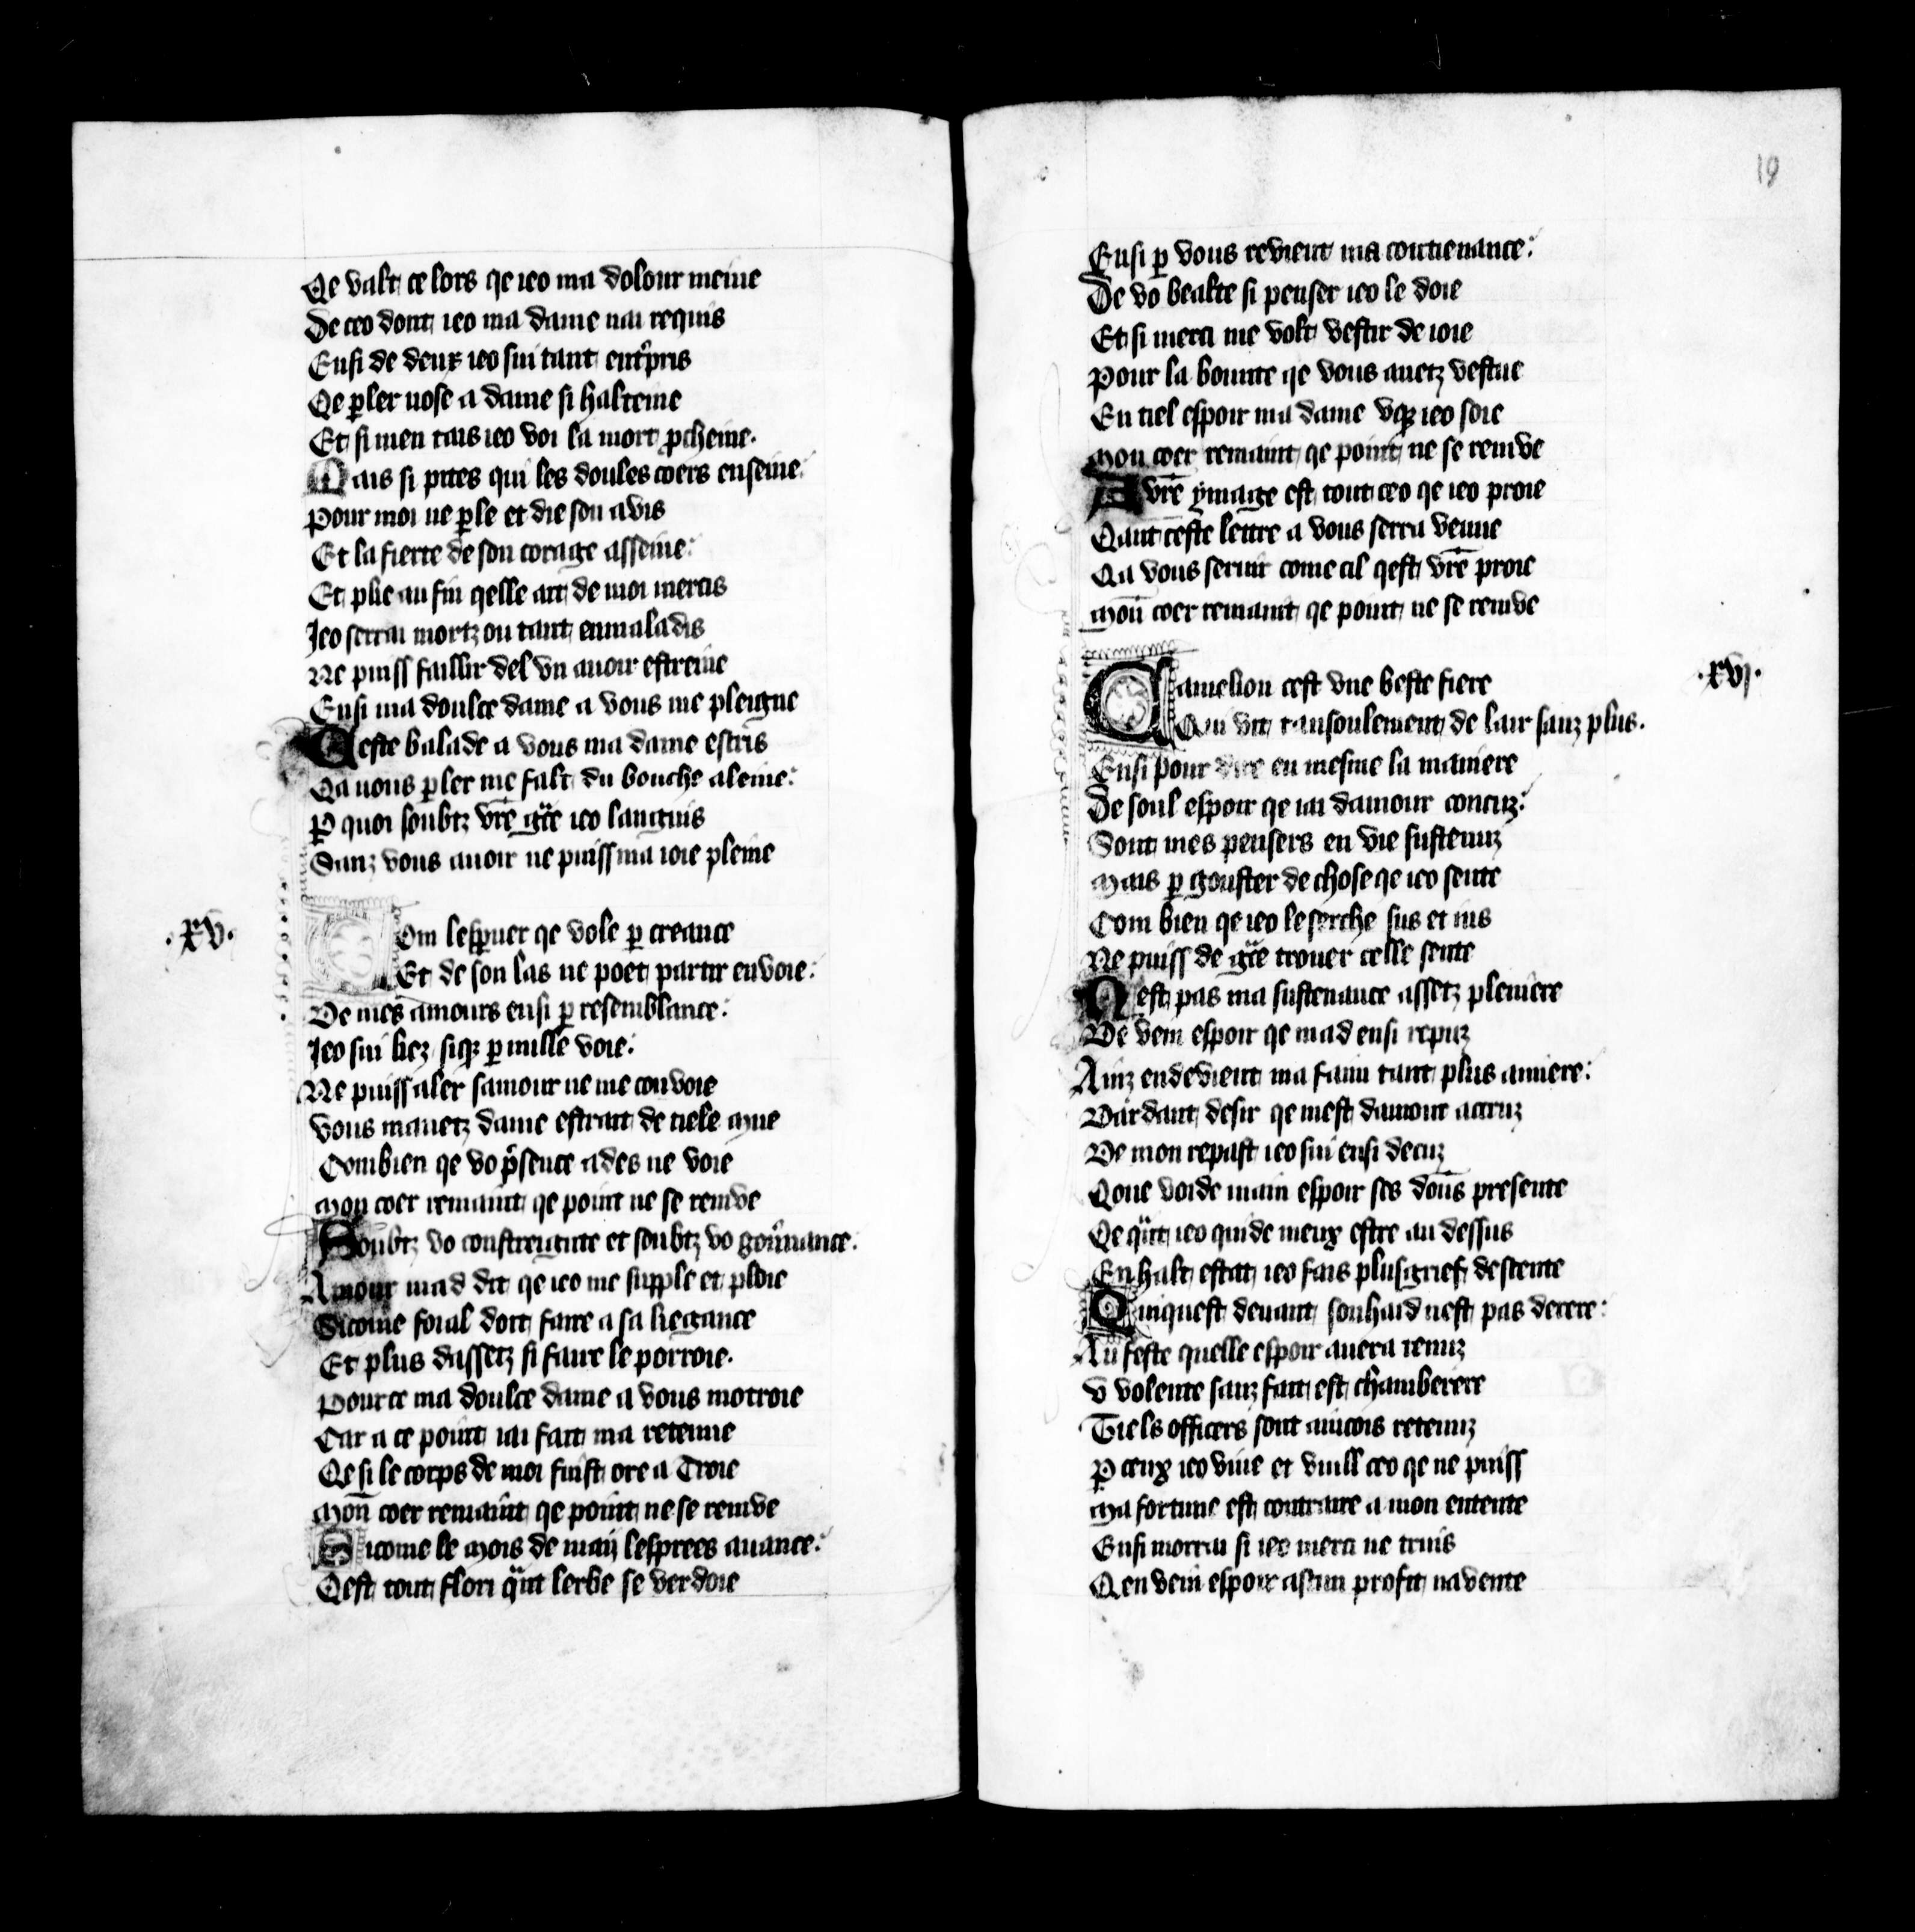 Qe valt ce lors qe ieo ma dolour meine
De ceo dont ieo ma dame nai requis
Ensi de deux ieo sui tant entrpris
Qe ꝑler nose a dame si halteine
Et si men tais ieo voi la mort ꝓcheine.
Mais si pites qui les doules coers enseine
Pour moi ne ꝑle et die son avis
Et la fierte de son corage asseine
Et plie au fin qelle ait de moi mercis
Jeo serrai mortz ou tant enmaladis
Ne puiss faillir del un auoir estreine
Ensi ma doulce dame a vous me pleigne
Ceste balade a vous ma dame escris
Qa vous ꝑler me falt du bouche aleine
Ꝑ quoi soubtz vr̄e gr̄e ieo languis
Sanz vous auoir ne puiss ma ioie pleine
.xv.
Com lesꝑuer qe vole ꝑ creance
Et de son las ne poet partir envoie
De mes amours ensi ꝑ resemblance
Jeo sui liez siqꝫ ꝑ nulle voie
Ne puiss aler samour ne me convoie
Vous mavetz dame estrait de tiele mue
Combien qe vo p̄sence ades ne voie
Mon coer remaint qe point ne se remve
Soubtz vo constreignte et soubtz vo gouernance
Amour mad dit qe ieo me supple et ploie
Sicome foial doit faire a sa liegance
Et plus dassetz si faire le porroie.
Pource ma doulce dame a vous motroie
Car a ce point iai fait ma retenue
Qe si le corps de moi fuist ore a Troie
Mon̄ coer remaint qe point ne se remve
Sicome le mois de maij lesprees auance
Qest tout flori qant lerbe se verdoie
19
Ensi ꝑ vous revient ma contienance
De vo bealte si penser ieo le doie
Et si merci me volt vestir de ioie
Pour la bounte qe vous auetz vestue
En tiel espoir ma dame vqꝫ ieo soie
Mon coer remaint qe point ne se remve
A vr̄e ymage est tout ceo qe ieo proie
Qant ceste lettre a vous serra venue
Qa vous seruir come cil qest vr̄e proie
Mon̄ coer remaint qe point ne se remve
.xvj.
Camelion cest vne beste fiere
Qui vit tansoulement de lair sanz plus.
Ensi pour dire en mesme la maniere
De soul espoir qe iai damour conceuz
Sont mes pensers en vie sustenuz
Mais ꝑ gouster de chose qe ieo sente
Com bien qe ieo le serche sus et ius
Ne puiss de gr̄e trouer celle sente
Nest pas ma sustenance assetz pleniere
De vein espoir qe mad ensi repuz
Ainz endevient ma faim tant plus amiere
Dardant desir qe mest damour accruz
De mon repast ieo sui ensi decuz
Qoue voide main espoir ses dons presente
Qe qant ieo quide meux estre au dessus
En halt estat ieo fais plusgrief destente
Quiquest deuant souhaid nest pas derere
Au feste quelle espoir auera tenuz
U volente sanz fait est chamberere
Tiels officers sont aincois retenuz
Ꝑ ceux ieo viue et vuill ceo qe ne puiss
Ma fortune est contraire a mon entente
Ensi morrai si ieo merci ne truis
Qen vein espoir ascun profit navente